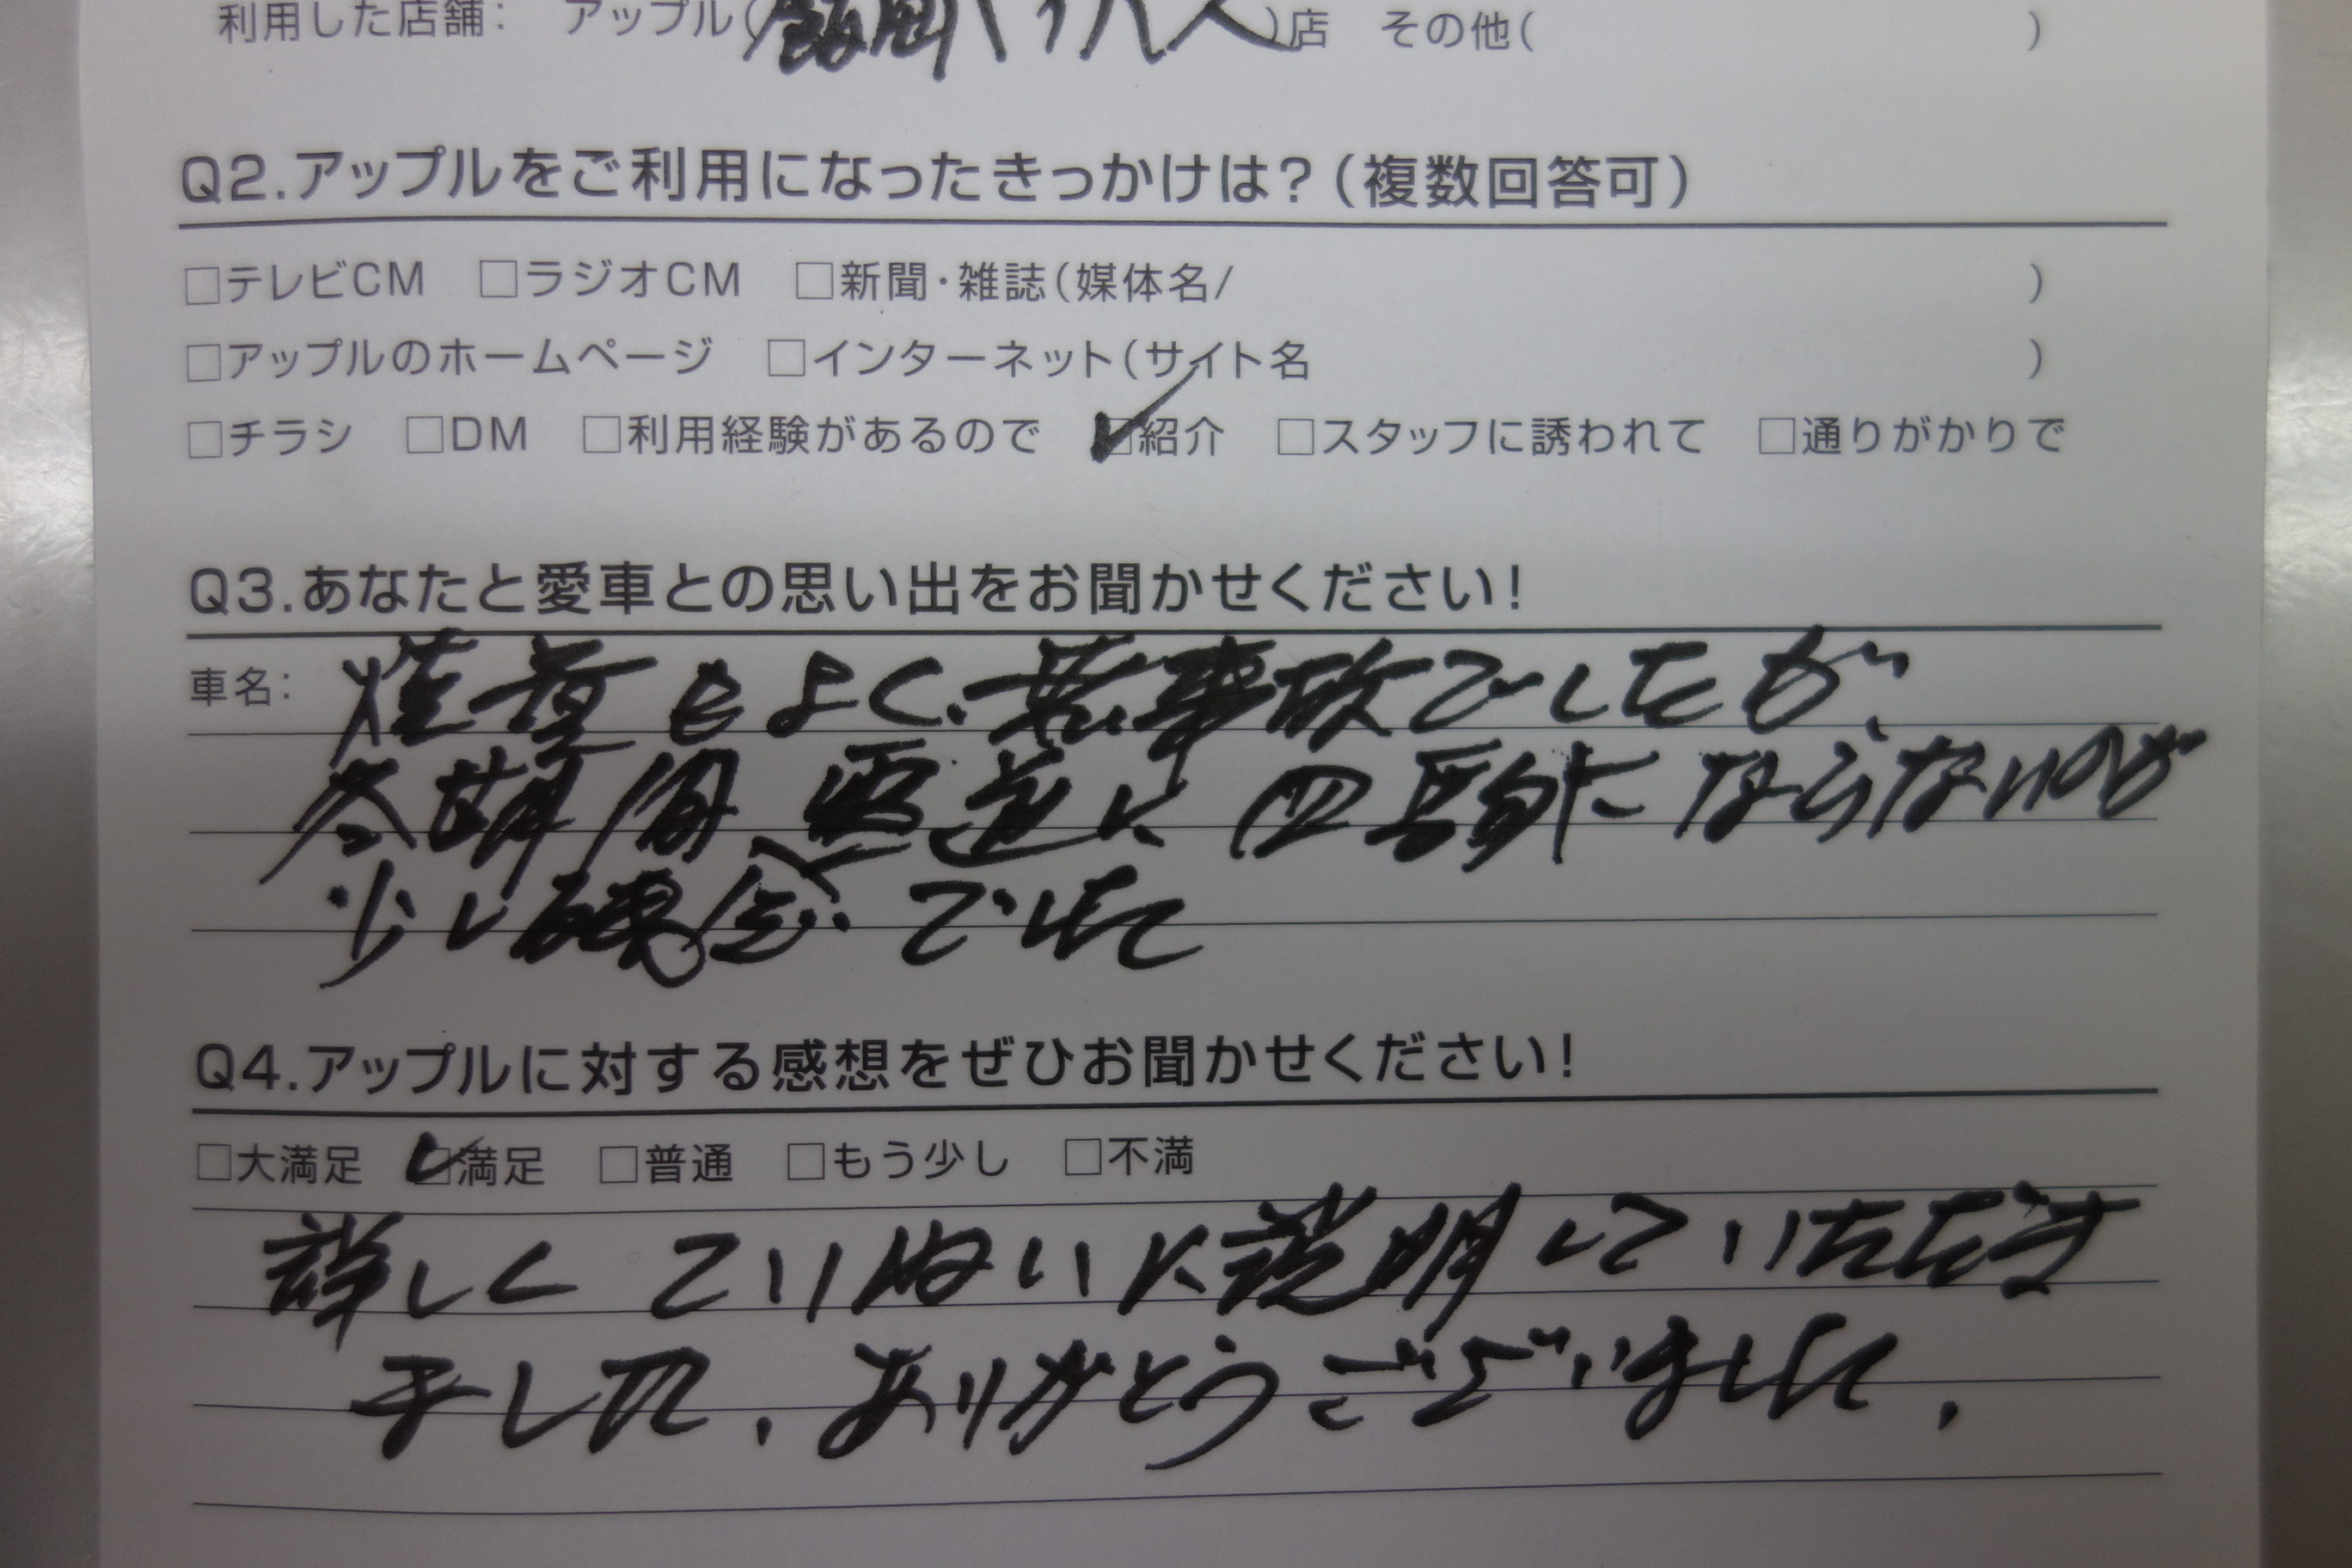 利用した店舗： アップル(盛岡バイパス)店 その他( )
Q2.アップルをご利用になったきっかけは？(複数回答可)
□テレビCM □ラジオCM □新聞・雑誌(媒体名/ )
□アップルのホームページ □インターネット(サイト名 )
□チラシ □DM □利用経験があるので ☑紹介 □スタッフに誘われて □通りがかりで
Q3.あなたと愛車との思い出をお聞かせください！
車名： 燃費もよく、無事故でしたが、
冬期間 雪道に 四駆に ならないのが
少し残念でした
Q4.アップルに対する感想をぜひお聞かせください！
□大満足 ☑満足 □普通 □もう少し □不満
詳しく ていねいに説明していただき
ました、ありがとうございました、